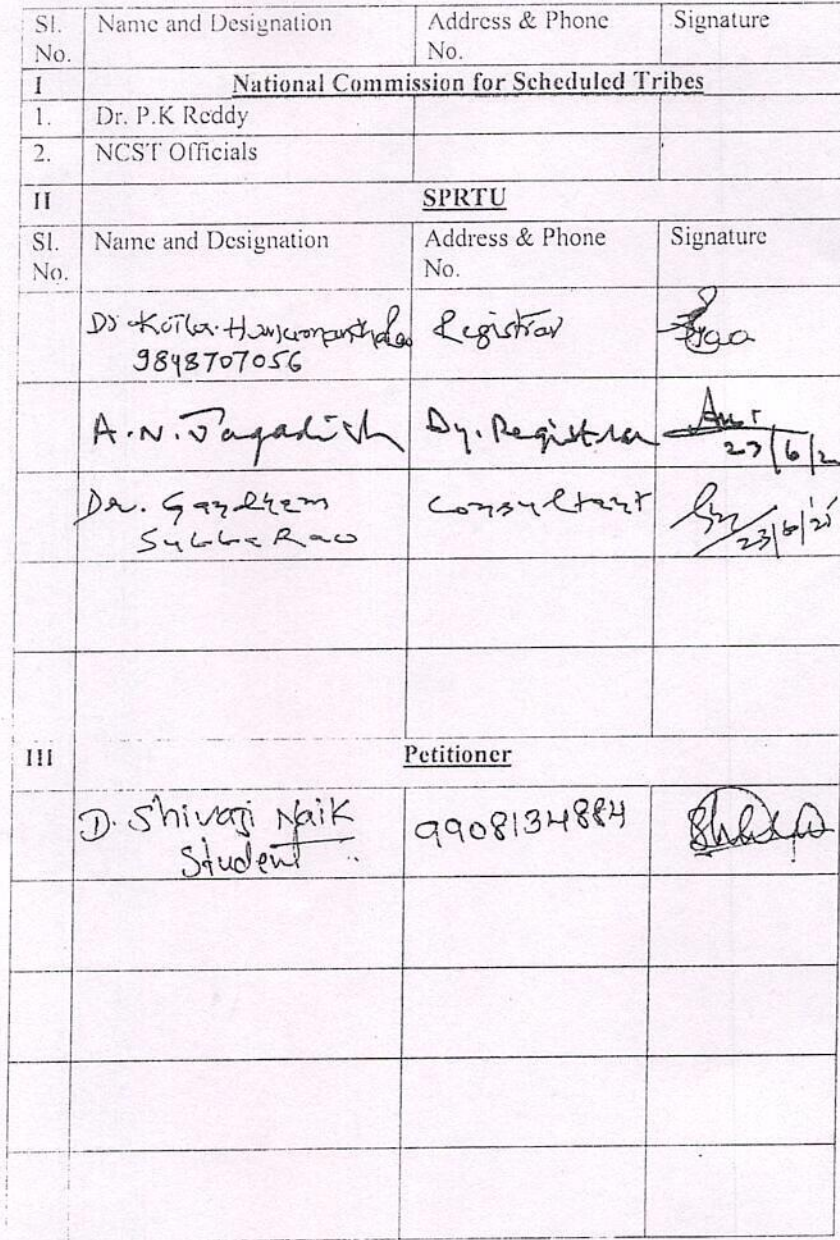 Sl. No. Name and Designation Address & Phone No. Signature
I National Commission for Scheduled Tribes
1. Dr. P.K Reddy
2. NCST Officials
II SPRTU
Sl. No. Name and Designation Address & Phone No. Signature
Dr Kotla Registrar
9848707056
A.N. Jagadish Dy. Registrar
Dr. Consultant
Subba Rao 23/6/21
III Petitioner
D. Shivaji Naik 9908134884
Student